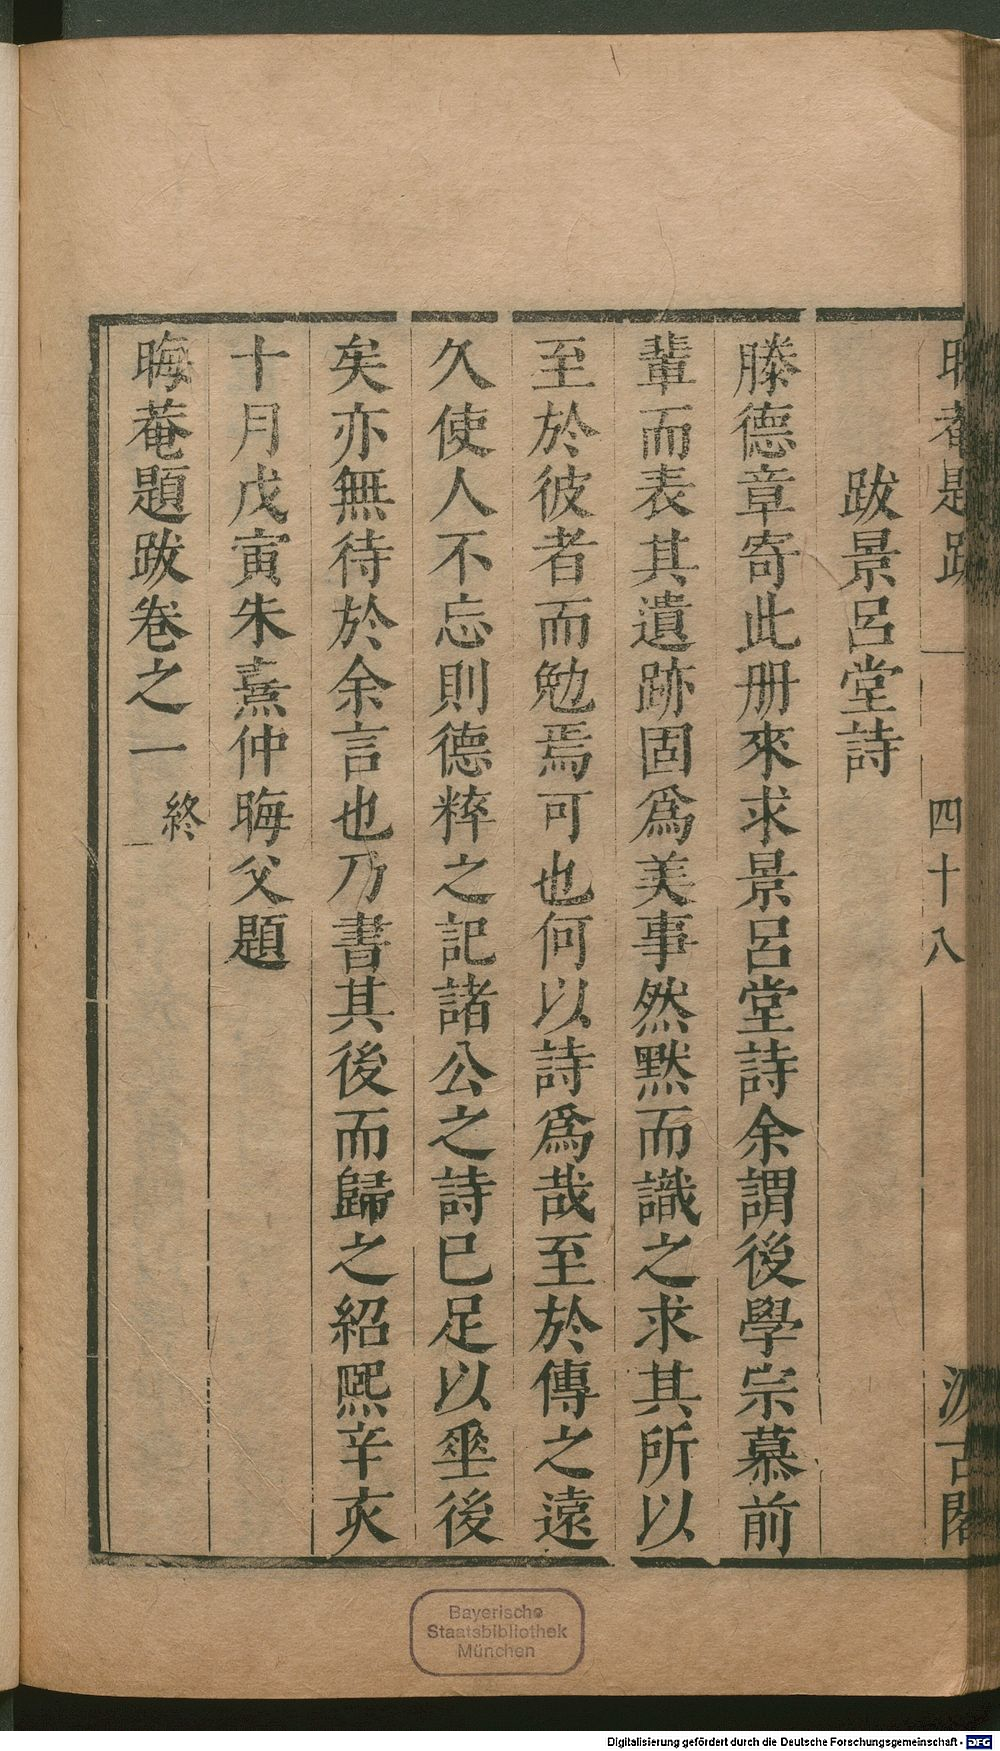 晦菴題跋 一 四十八 汲古閣
跋景呂堂詩
滕德章寄此册來求景呂堂詩余謂後學宗慕前
輩而表其遺跡固爲美事然黙而識之求其所以
至於彼者而勉焉可也何以詩爲哉至於傳之遠
久使人不忘則德粹之記諸公之詩已足以埀後
矣亦無待於余言也乃書其後而歸之紹熙辛亥
十月戊寅朱熹仲晦父題
晦菴題跋卷之一 終
Bayerische
Staatsbibliothek
München
Digitalisierung gefördert durch die Deutsche Forschungsgemeinschaft - DFG